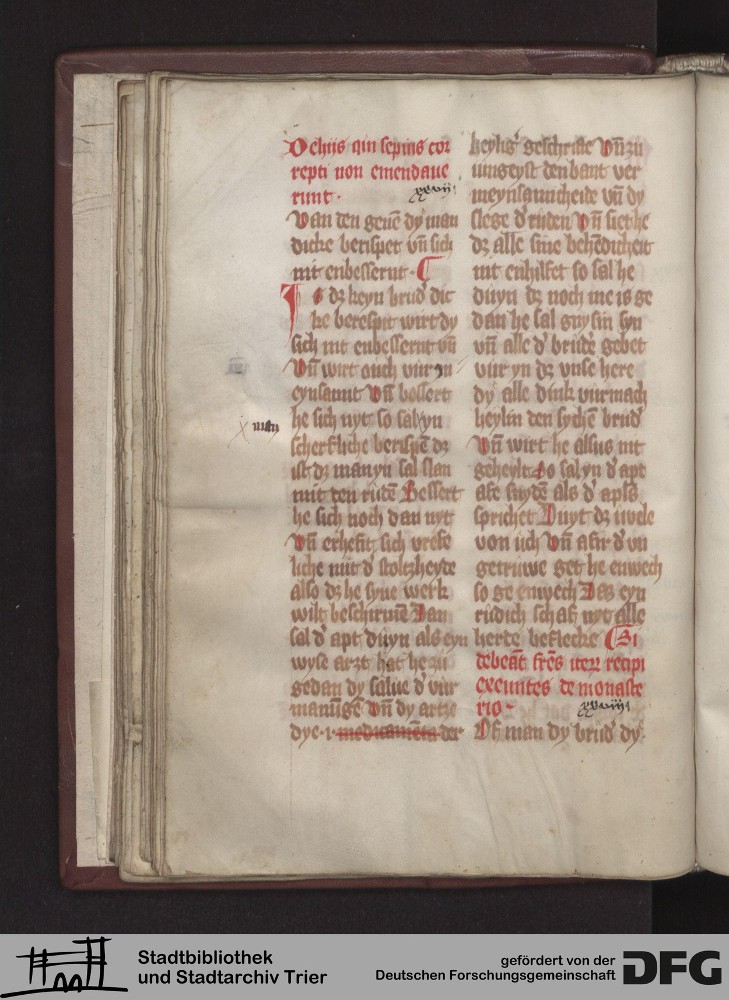 De hiis qui sepius cor
repti non emendaue
runt.
xxviiͭ
Van den genē dy man
dicke berispet vn̄ sich
nit enbessernt.
Is dz keyn brud' dic
ke berespit wirt dy
sich nit enbessernt vn̄
Vn̄ wirt ouch vur yn
eynsamt Vn̄ bessert
he sich nyt so sal yn
man
scherfliche berispē dz
ist dz man yn sal slan
mit den rūdē Bessert
he sich noch dan nyt
Vn̄ erhefit sich vrefe
liche mit d' stoltzheyde
also dz he syne werk
wilt beschirmē Dan
sal d' apt duyn als eyn
wyse arzt hat he zu
gedan dy salue d' vur
manūge Vn̄ dy artze
dye medicamēta der
heylig' geschrifte Vn̄ zu
iungeyst den bant ver
meynsamcheide vn̄ dy
slege d' ruden Vn̄ siet he
dz alle sine behēdicheit
nit enhilfet so sal he
duyn dz noch me is ge
dan he sal gny sin syn
vn̄ alle d' brud'e gebet
vur yn dz vnse here
dy alle dink vurmach
heylin den sychē brud'
Vn̄ wirt he alsus nit
geheylt So sal yn d' apt
afe snydē als d' apl's
sprichet Duyt dz uvele
von uch Vn̄ afir d' vn
getriwe get he enwech
so ge enwech Daz eyn
rudich schaf nyt alle
herde beflecke Si
debeāt fr̄es iterū recipi
exeuntes de monaste
rio.
xxviiii
Of man dy brud' dy
Stadtbibliothek
und Stadtarchiv Trier
gefördert von der
Deutschen Forschungsgemeinschaft
DFG